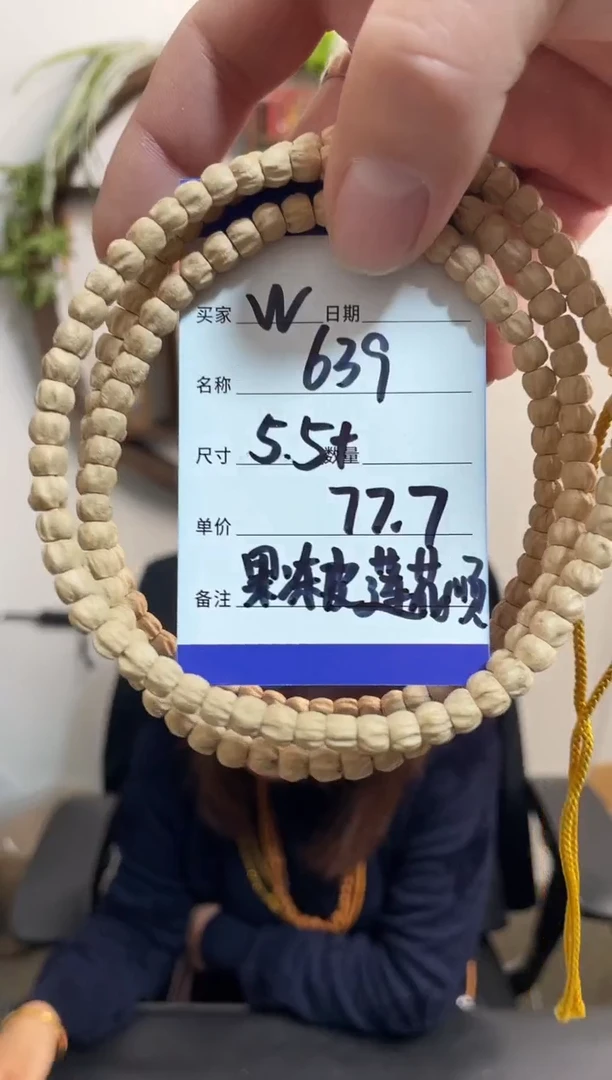 买家 W 日期
名称 639
尺寸 5.5+ 数量
单价 77.7
备注 果冻皮莲花顺